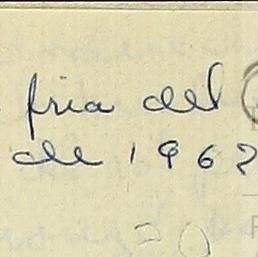 fria del
de 1962